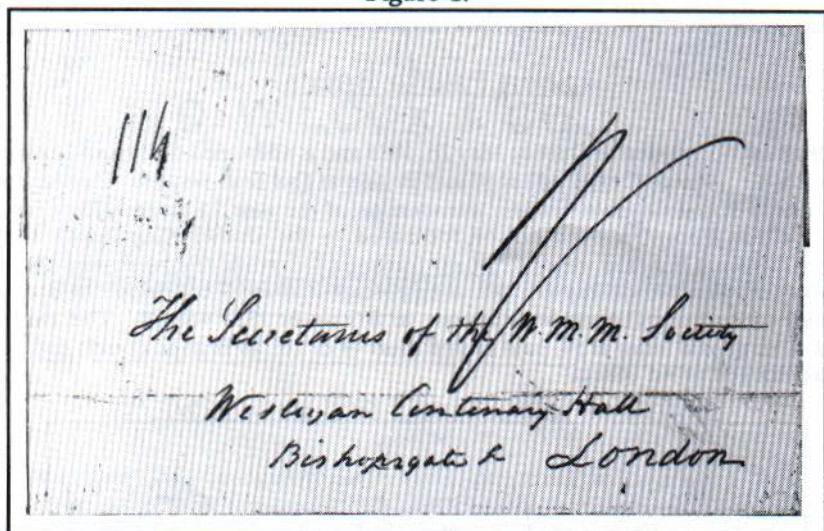 The Secretaries of the W. M. M. Society
Wesleyan Centenary Hall
Bishopsgate London